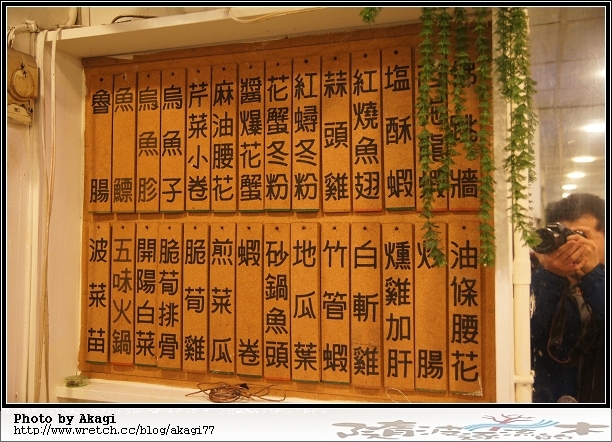 跳牆
蝦
塩酥蝦
紅燒魚翅
蒜頭雞
紅蟳冬粉
花蟹冬粉
醬爆花蟹
麻油腰花
芹菜小卷
烏魚子
烏魚胗
魚鰾
魯腸
油條腰花
腸
燻雞加肝
白斬雞
竹管蝦
地瓜葉
砂鍋魚頭
蝦卷
煎菜瓜
脆筍雞
脆荀排骨
開陽白菜
五味火鍋
波菜苗
Photo by Akagi
http://www.wretch.cc/blog/akagi77